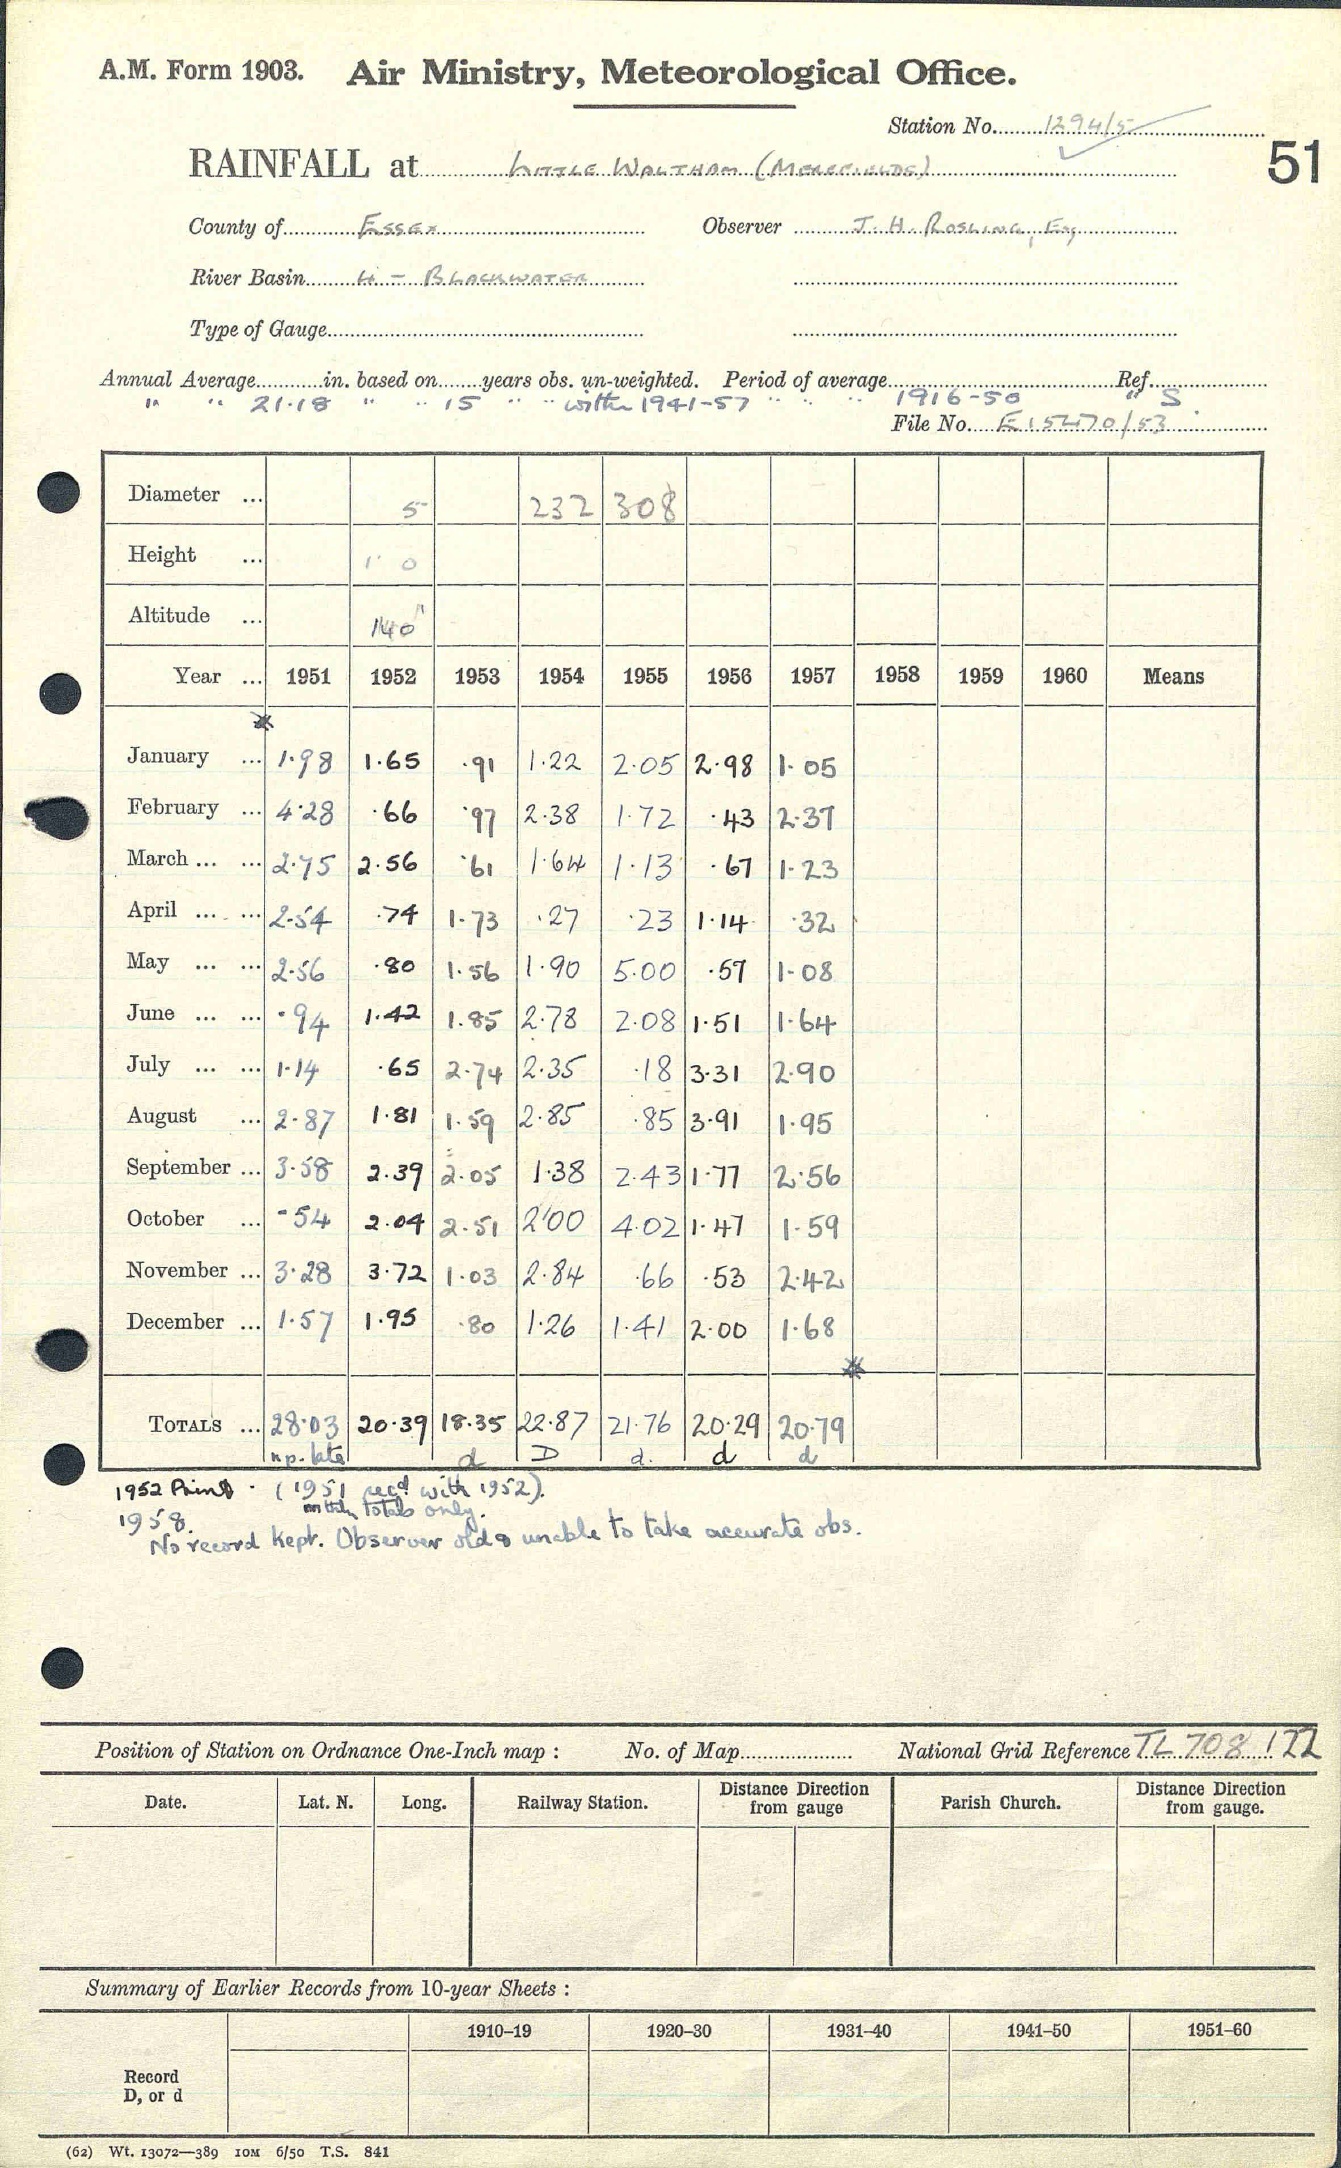 A.M. Form 1903. Air Ministry, Meteorological Office.
Station No. 1294/5
51
RAINFALL at LITTLE WALTHAM (MEREFIELDS)
County of ESSEX Observer J. H. ROSLING, Esq
River Basin 4 - BLACKWATER
Type of Gauge
Annual Average in. based on years obs. un-weighted. Period of average Ref.
" " 21.18 " " 15 " " within 1941-57 " " " 1916-50 " S.
File No. E15470/53
Diameter ... 5 232 308
Height ... 1' 0
Altitude ... 140
Year ... 1951 1952 1953 1954 1955 1956 1957 1958 1959 1960 Means
January ... 1.98 1.65 .91 1.22 2.05 2.98 1.05
February ... 4.28 .66 .97 2.38 1.72 .43 2.37
March ... ... 2.75 2.56 .61 1.64 1.13 .67 1.23
April ... ... 2.54 .74 1.73 .27 .23 1.14 .32
May ... ... 2.56 .80 1.56 1.90 5.00 .57 1.08
June ... ... .94 1.42 1.85 2.78 2.08 1.51 1.64
July ... ... 1.14 .65 2.74 2.35 .18 3.31 2.90
August ... 2.87 1.81 1.59 2.85 .85 3.91 1.95
September ... 3.58 2.39 2.05 1.38 2.43 1.77 2.56
October ... .54 2.04 2.51 2.00 4.02 1.47 1.59
November ... 3.28 3.72 1.03 2.84 .66 .53 2.42
December ... 1.57 1.95 .80 1.26 1.41 2.00 1.68
TOTALS ... 28.03 20.39 18.35 22.87 21.76 20.29 20.79
n.p. late d D d. d d
1952 Print. (1951 recd with 1952).
mthly totals only.
1958.
No record kept. Observer old & unable to take accurate obs.
Position of Station on Ordnance One-Inch map : No. of Map National Grid Reference TL 708 122
Date. Lat. N. Long. Railway Station. Distance Direction from gauge Parish Church. Distance Direction from gauge.
Summary of Earlier Records from 10-year Sheets :
1910–19 1920–30 1931–40 1941–50 1951–60
Record
D, or d
(62) Wt. 13072—389 10M 6/50 T.S. 841